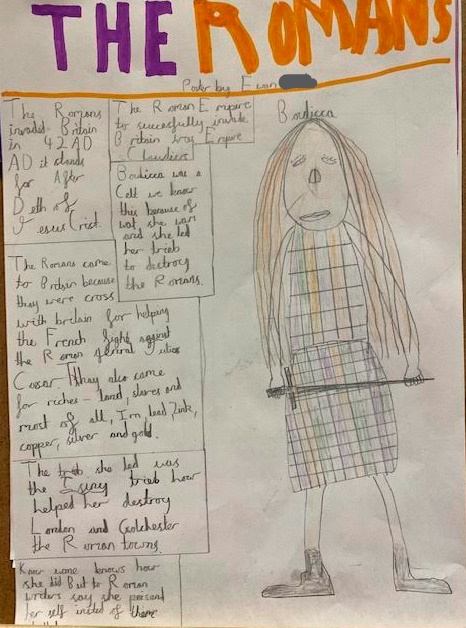 THE ROMANS
Poster by Evan
The Romans
invaded Britain
in 42 AD
AD it stands
for After
Deth of
Jesus Crist.
The Roman Empire
to succesfully invade
Britain was Empire
Claudius
Boudicca
Boudicca was a
Celt we know
this because of
wat she wan
and she led
her trieb
to destroy
the Romans.
The Romans came
to Britain because
they were cross
with britain for helping
the French fight against
the Roman general Julius
Caesar. They also came
for riches - land, slaves and
most of all, Iron, lead, Zink,
copper, silver and gold.
The trieb she led was
the trieb how
helped her destroy
London and Colchester
the Roman towns.
Know wone knows how
she did But to Roman
writers say she
her self insted of them